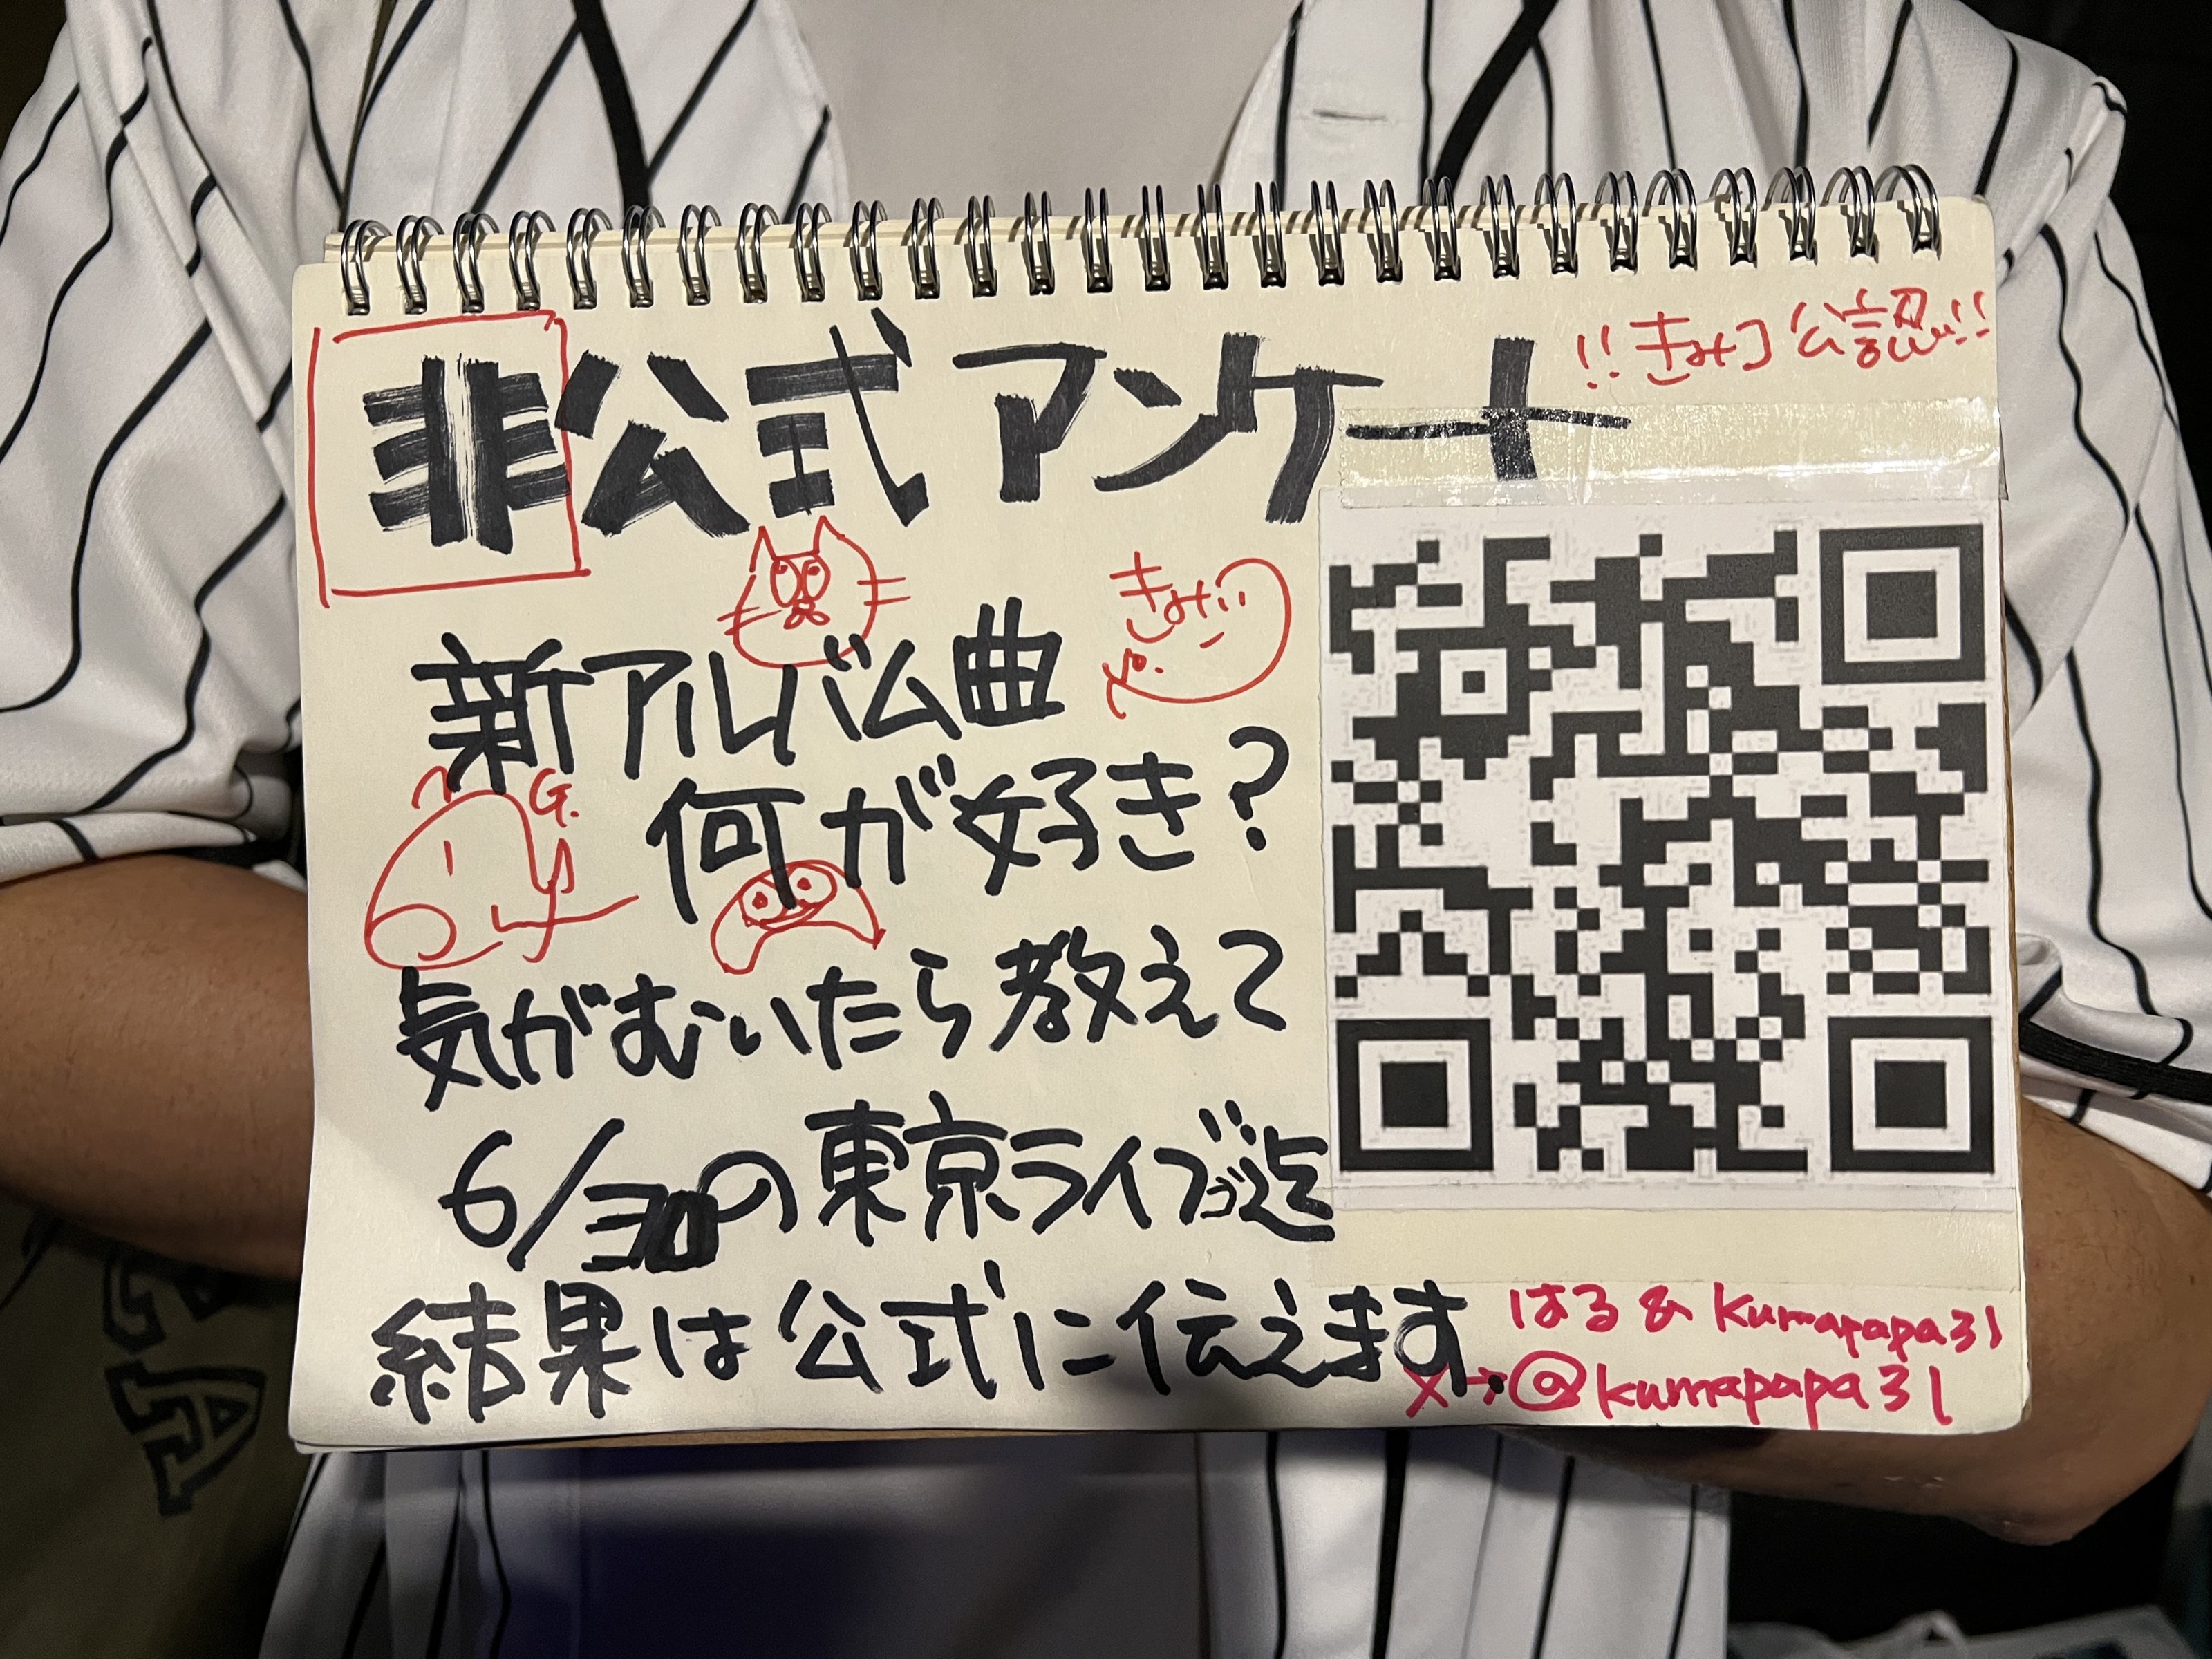 !! きみコ 公認 !!
非公式アンケート
新アルバム曲
何が好き?
G.
気がむいたら教えて
6/30の東京ライブ迄
結果は公式に伝えます
はる & kumapapa31
X→@kumapapa31